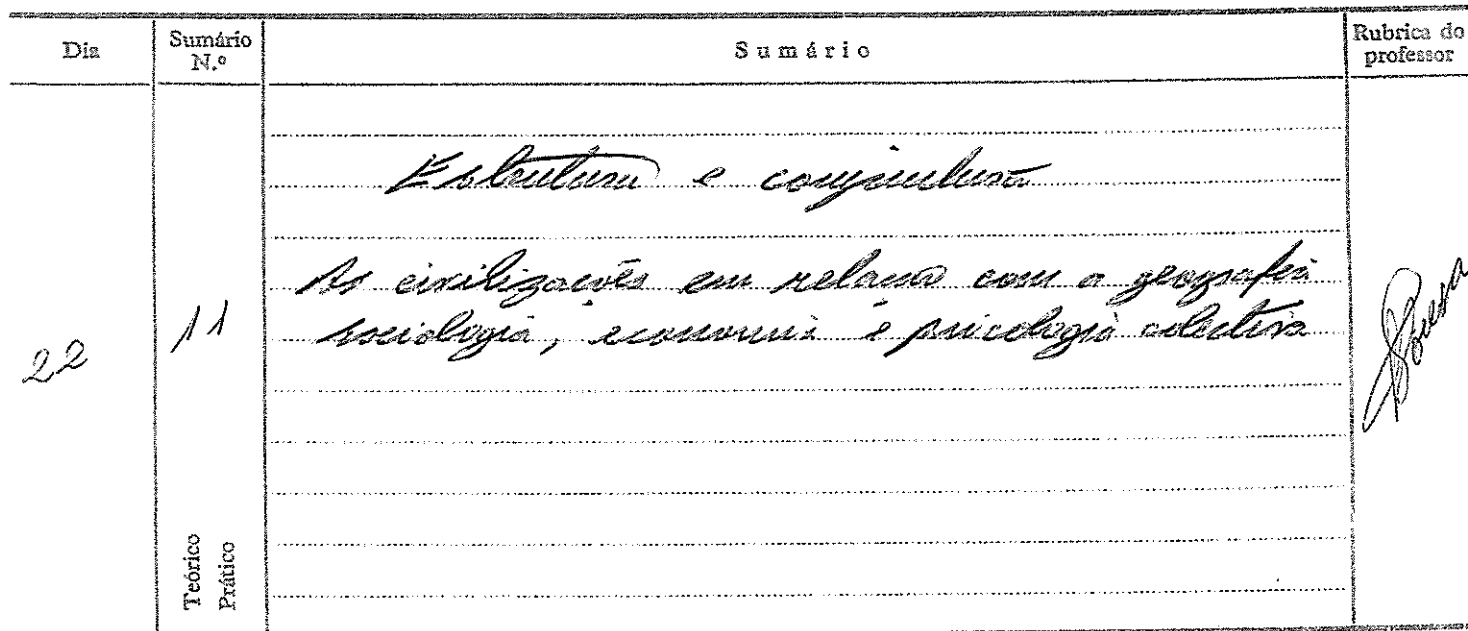 Dia
Sumário N.º
Sumário
Rubrica do professor
Estrutura e conjuntura
As civilizações em relação com a geografia
sociologia, economia e psicologia colectiva
22
11
Teórico
Prático